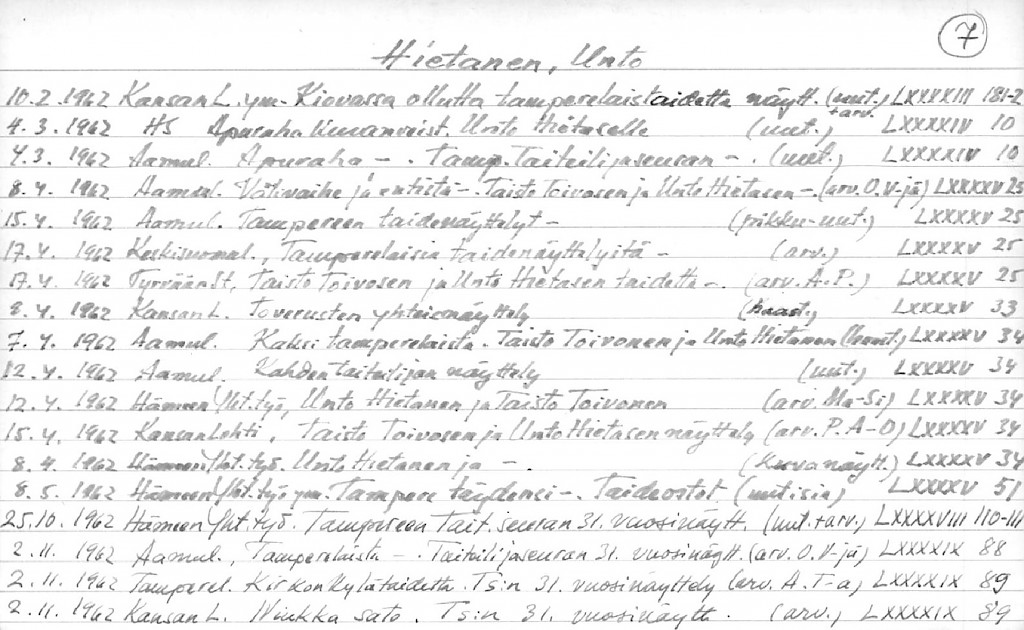 7
Hietanen, Unto
10.2.1962 Kansan L. ym. Kiovassa ollutta tamperelaistaidetta näytt. (uut.) + arv. LXXXXIII 181-2
4.3.1962 HS Apuraha Unto Hietaselle (uut.) LXXXXIV 10
4.3.1962 Aamul. Apuraha - . Tamp. Taiteilijaseuran - . (uut.) LXXXXIV 10
8.4.1962 Aamul. Välivaihe ja entistä - . Taisto Toivosen ja Unto Hietasen - . (arv. O.V-jä) LXXXXV 25
15.4.1962 Aamul. Tampereen taidenäyttelyt - (pikku-uut.) LXXXXV 25
17.4.1962 Keskisuomal., Tamperelaisia taidenäyttelyitä - (arv.) LXXXXV 25
17.4.1962 Tyrvään St, Taisto Toivosen ja Unto Hietasen taidetta - . (arv. A.P.) LXXXXV 25
8.4.1962 Kansan L. Toverusten yhteisnäyttely (haast.) LXXXXV 33
7.4.1962 Aamul. Kaksi tamperelaista. Taisto Toivonen ja Unto Hietanen (haast.) LXXXXV 34
12.4.1962 Aamul. Kahden taiteilijan näyttely (uut.) LXXXXV 34
12.4.1962 Hämeen Yht.työ, Unto Hietanen ja Taisto Toivonen (arv. Ma-Si) LXXXXV 34
15.4.1962 Kansan Lehti, Taisto Toivosen ja Unto Hietasen näyttely (arv. P.A-O) LXXXXV 34
8.4.1962 Hämeen Yht.työ. Unto Hietanen ja - . (Kuva näytt.) LXXXXV 34
8.5.1962 Hämeen Yht.työ ym. Tampere täydensi - . Taideostot (uutisia) LXXXXV 51
25.10.1962 Hämeen Yht.työ. Tampereen Tait.seuran 31. vuosinäytt. (uut. + arv.) LXXXXVIII 110-111
2.11.1962 Aamul., Tamperelaista - . Taiteilijaseuran 31. vuosinäytt. (arv. O.V-jä) LXXXXIX 88
2.11.1962 Tamperel. Kirkonkylätaidetta. Ts:n 31. vuosinäyttely (arv. A.T-a) LXXXXIX 89
2.11.1962 Kansan L. Niukka sato. Ts:n 31. vuosinäytt. (arv.) LXXXXIX 89